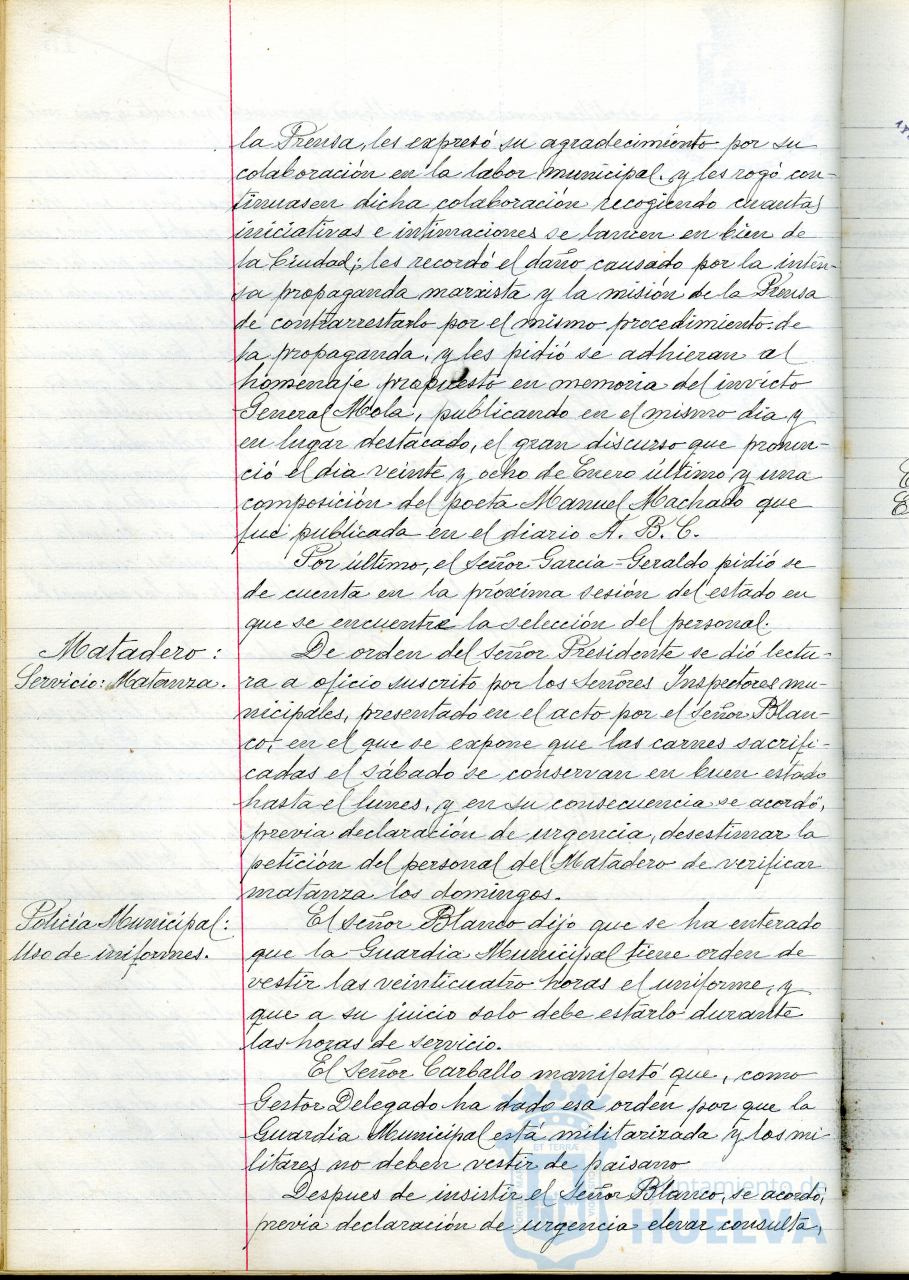 la Prensa, les expresó su agradecimiento por su
colaboración en la labor municipal y les rogó con-
tinuasen dicha colaboración recogiendo cuantas
iniciativas e intimaciones se lancen en bien de
la Ciudad; les recordó el daño causado por la inten-
sa propaganda marxista y la misión de la Prensa
de contrarrestarlo por el mismo procedimiento de
la propaganda, y les pidió se adhieran al
homenaje propuesto en memoria del invicto
General Mola, publicando en el mismo dia y
en lugar destacado, el gran discurso que pronun-
ció el dia veinte y ocho de Enero último y una
composición del poeta Manuel Machado que
fué publicada en el diario A. B. C.
Por último, el Señor García-Geraldo pidió se
de cuenta en la próxima sesión del estado en
que se encuentre la selección del personal.
Matadero:
Servicio: Matanza.
De orden del Señor Presidente se dió lectu-
ra a oficio suscrito por los Señores Inspectores mu-
nicipales, presentado en el acto por el Señor Blan-
co, en el que se expone que las carnes sacrifi-
cadas el sábado se conservan en buen estado
hasta el lunes, y en su consecuencia se acordó,
previa declaración de urgencia, desestimar la
petición del personal del Matadero de verificar
matanza los domingos.
Policía Municipal:
Uso de uniformes.
El Señor Blanco dijo que se ha enterado
que la Guardia Municipal tiene orden de
vestir las veinticuatro horas el uniforme, y
que a su juicio solo debe estarlo durante
las horas de servicio.
El Señor Carballo manifestó que, como
Gestor Delegado ha dado esa orden por que la
Guardia Municipal está militarizada y los mi-
litares no deben vestir de paisano
Despues de insistir el Señor Blanco, se acordó,
previa declaración de urgencia elevar consulta,
Ayuntamiento de
HUELVA